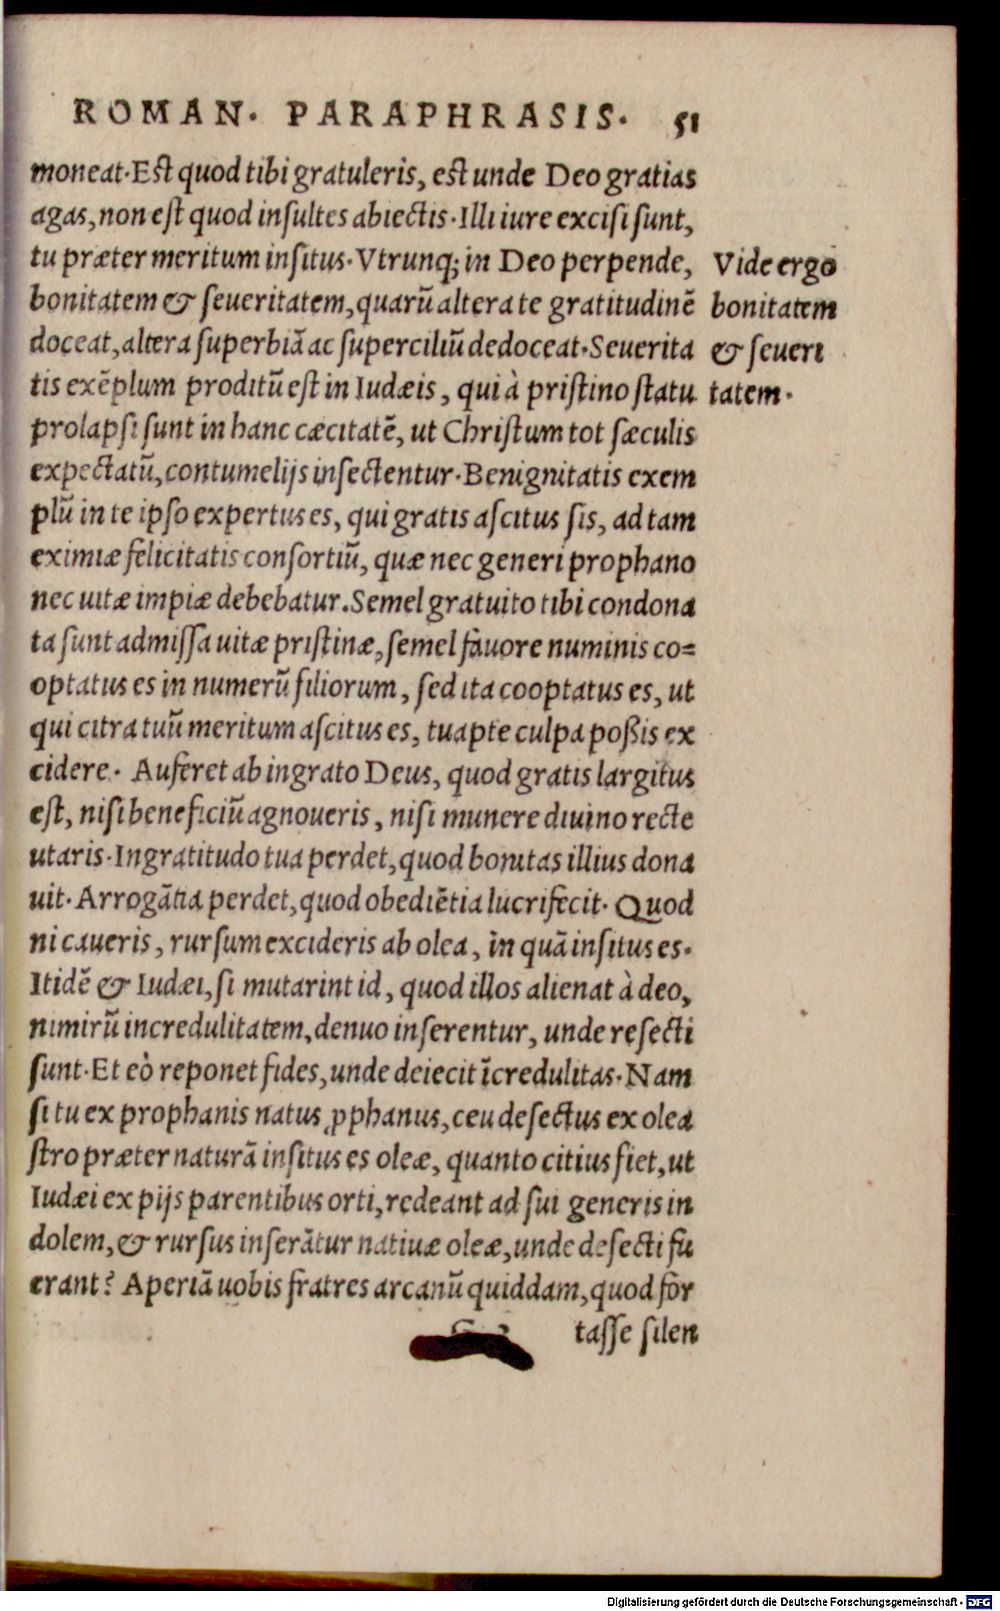 ROMAN. PARAPHRASIS. 51
moneat. Est quod tibi gratuleris, est unde Deo gratias
agas, non est quod insultes abiectis. Illi iure excisi sunt,
tu præter meritum insitus. Vtrunq; in Deo perpende,
bonitatem & seueritatem, quarū altera te gratitudinē
doceat, altera superbiā ac superciliū dedoceat. Seuerita
tis exēplum proditū est in Iudæis, qui à pristino statu
prolapsi sunt in hanc cæcitatē, ut Christum tot sæculis
expectatū, contumelijs insectentur. Benignitatis exem
plū in te ipso expertus es, qui gratis ascitus sis, ad tam
eximiæ felicitatis consortiū, quæ nec generi prophano
nec uitæ impiæ debebatur. Semel gratuito tibi condona
ta sunt admissa uitæ pristinæ, semel fauore numinis co=
optatus es in numerū filiorum, sed ita cooptatus es, ut
qui citra tuū meritum ascitus es, tuapte culpa poßis ex
cidere. Auferet ab ingrato Deus, quod gratis largitus
est, nisi beneficiū agnoueris, nisi munere diuino recte
utaris. Ingratitudo tua perdet, quod bonitas illius dona
uit. Arrogātia perdet, quod obediētia lucrifecit. Quod
ni caueris, rursum excideris ab olea, in quā insitus es.
Itidē & Iudæi, si mutarint id, quod illos alienat à deo,
nimirū incredulitatem, denuo inserentur, unde resecti
sunt. Et eò reponet fides, unde deiecit īcredulitas. Nam
si tu ex prophanis natus ꝓphanus, ceu desectus ex olea
stro præter naturā insitus es oleæ, quanto citius fiet, ut
Iudæi ex pijs parentibus orti, redeant ad sui generis in
dolem, & rursus inserātur natiuæ oleæ, unde desecti fu
erant? Aperiā uobis fratres arcanū quiddam, quod for
tasse silen
Vide ergo
bonitatem
& seueri
tatem.
Digitalisierung gefördert durch die Deutsche Forschungsgemeinschaft - DFG